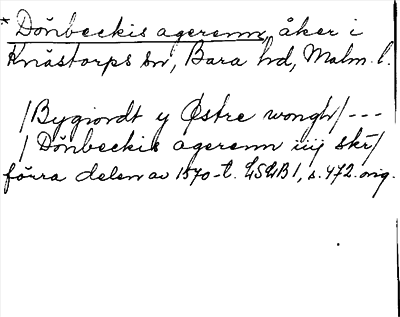 * Dŏnbeckis agerenn, åker i
Knästorps sn, Bara hd, Malm. l.
/Bygiondt y Østre wongh/ ---
/ Dŏnbeckis agerenn iiij skr̄/
förra delen av 1570-t. LSLB1, s. 472. orig.